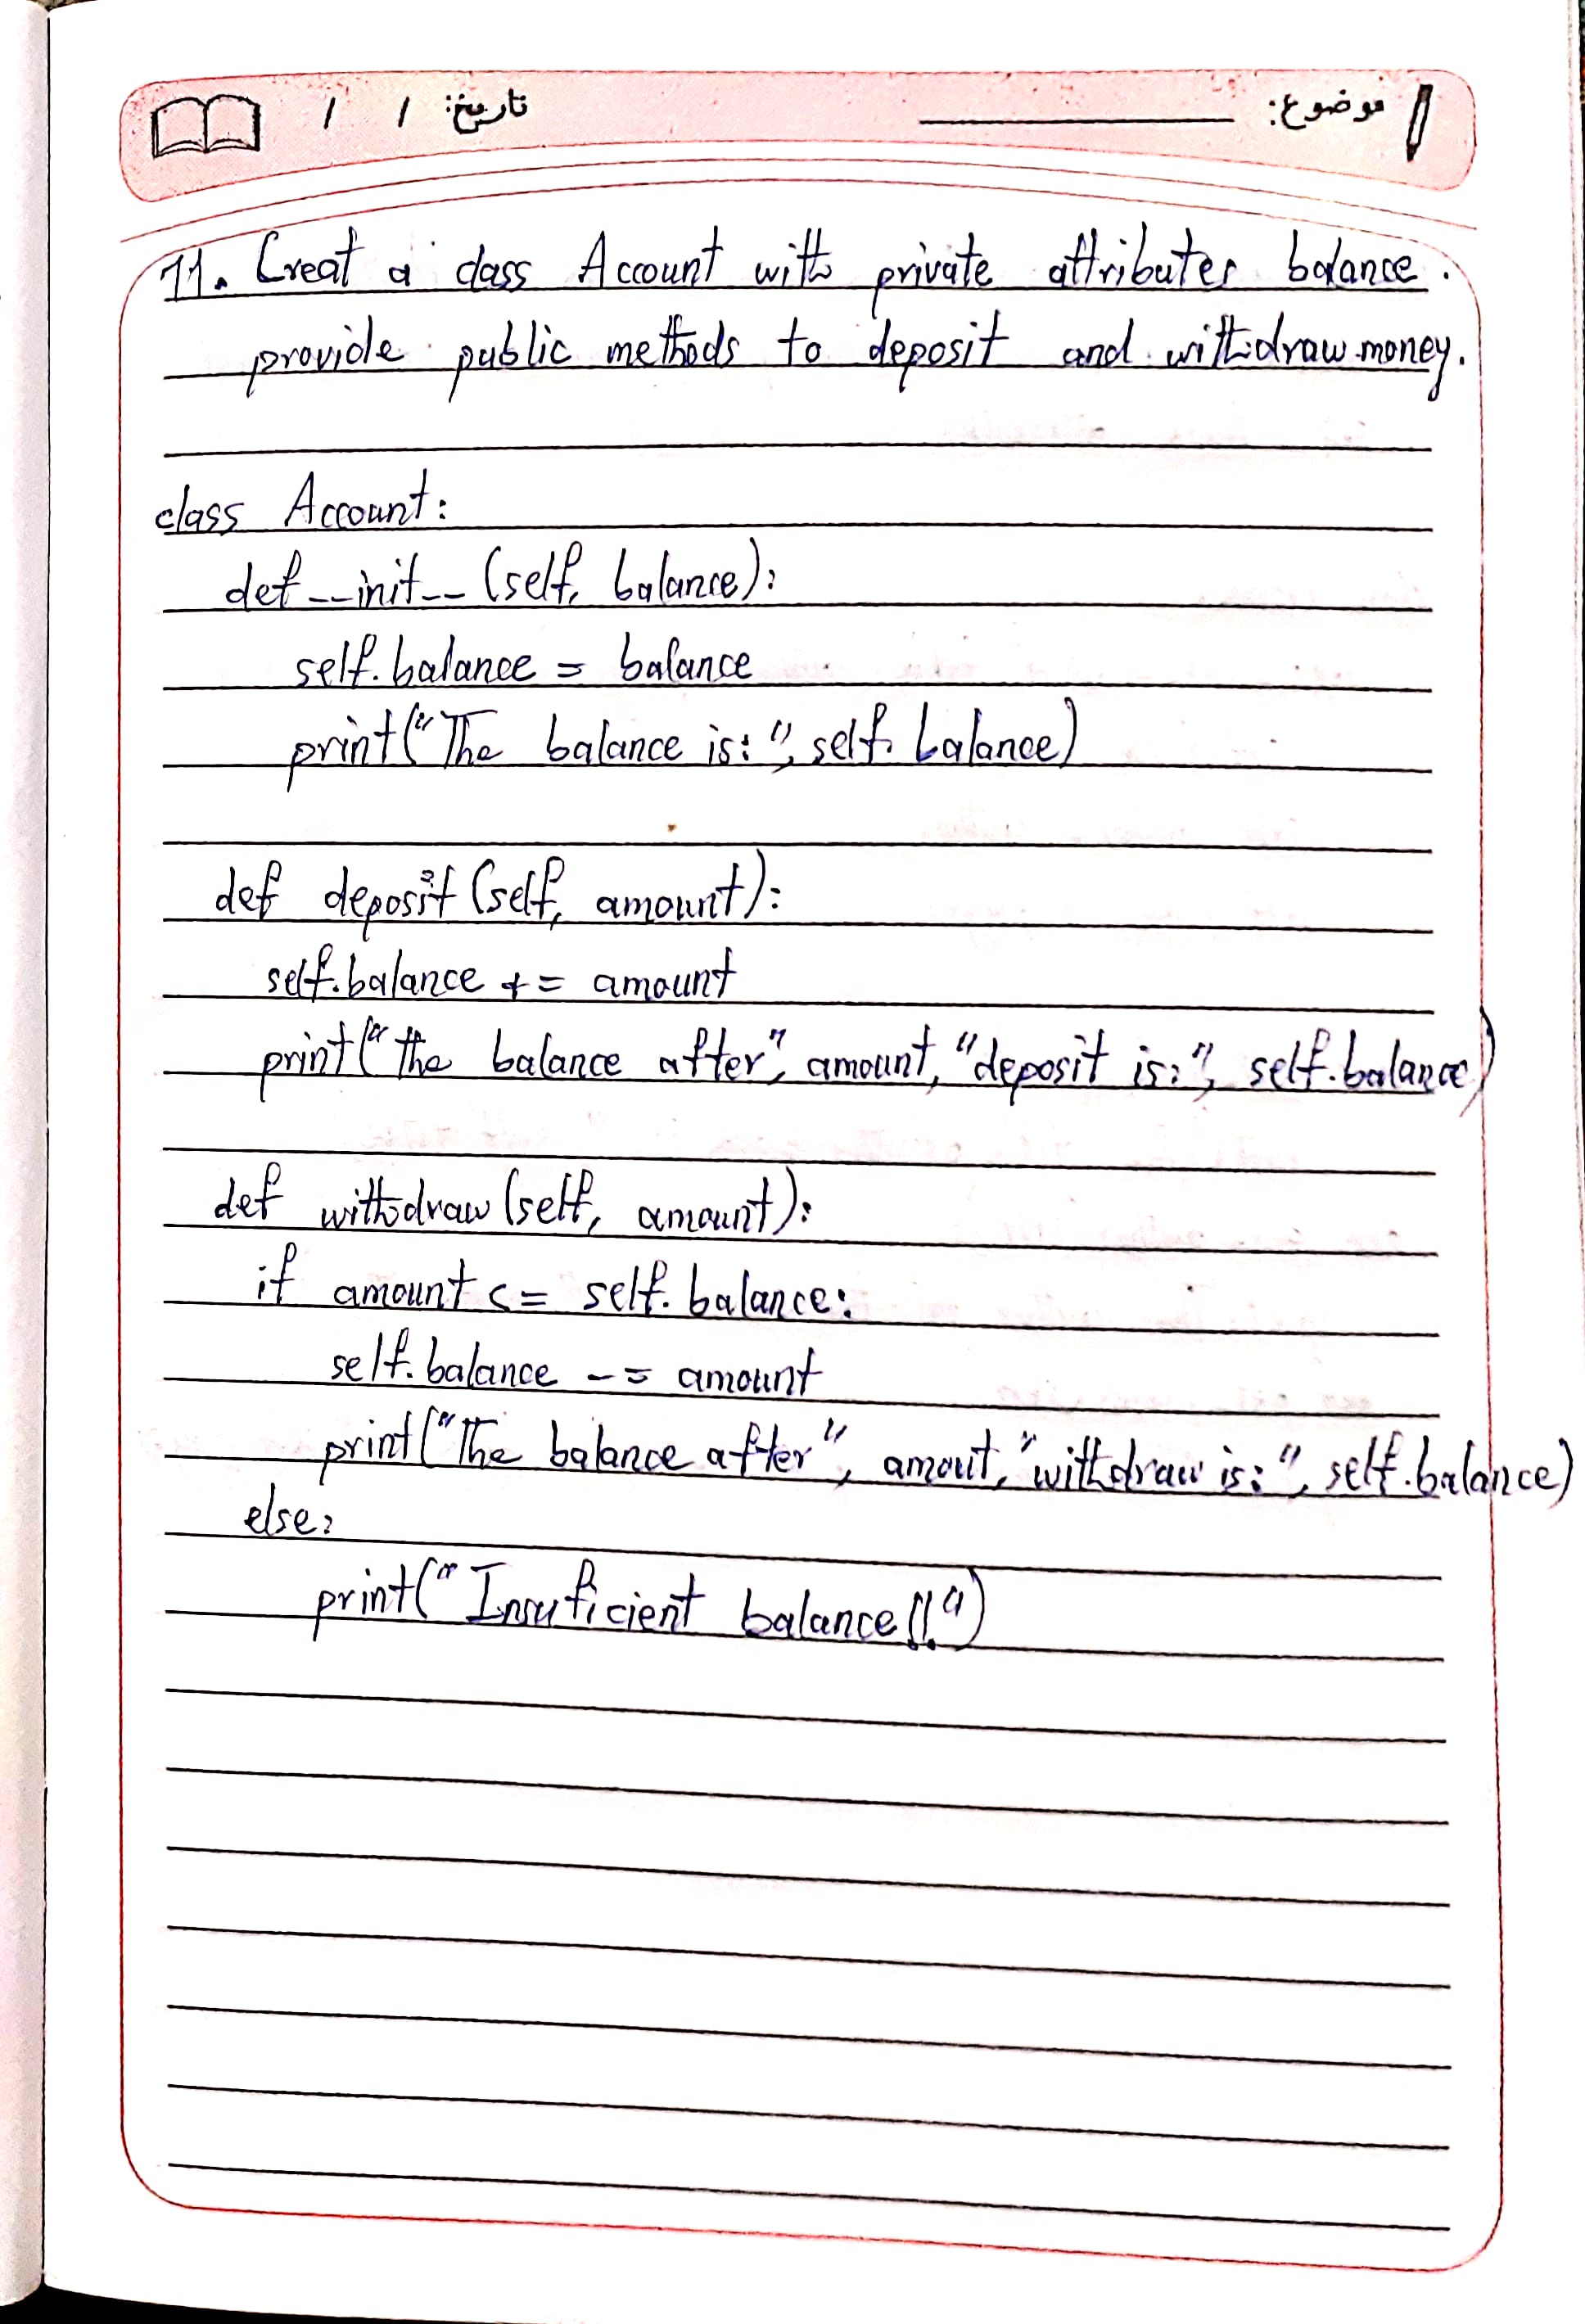 موضوع: تاریخ: / /
11. Creat a class Account with private attributes balance.
provide public methods to deposit and withdraw money.
class Account:
def __init__ (self, balance):
self.balance = balance
print("The balance is:", self.balance)
def deposit (self, amount):
self.balance += amount
print("the balance after", amount, "deposit is:", self.balance)
def withdraw (self, amount):
if amount <= self.balance:
self.balance -= amount
print("The balance after", amout, "withdraw is:", self.balance)
else:
print("Insuficient balance!!")